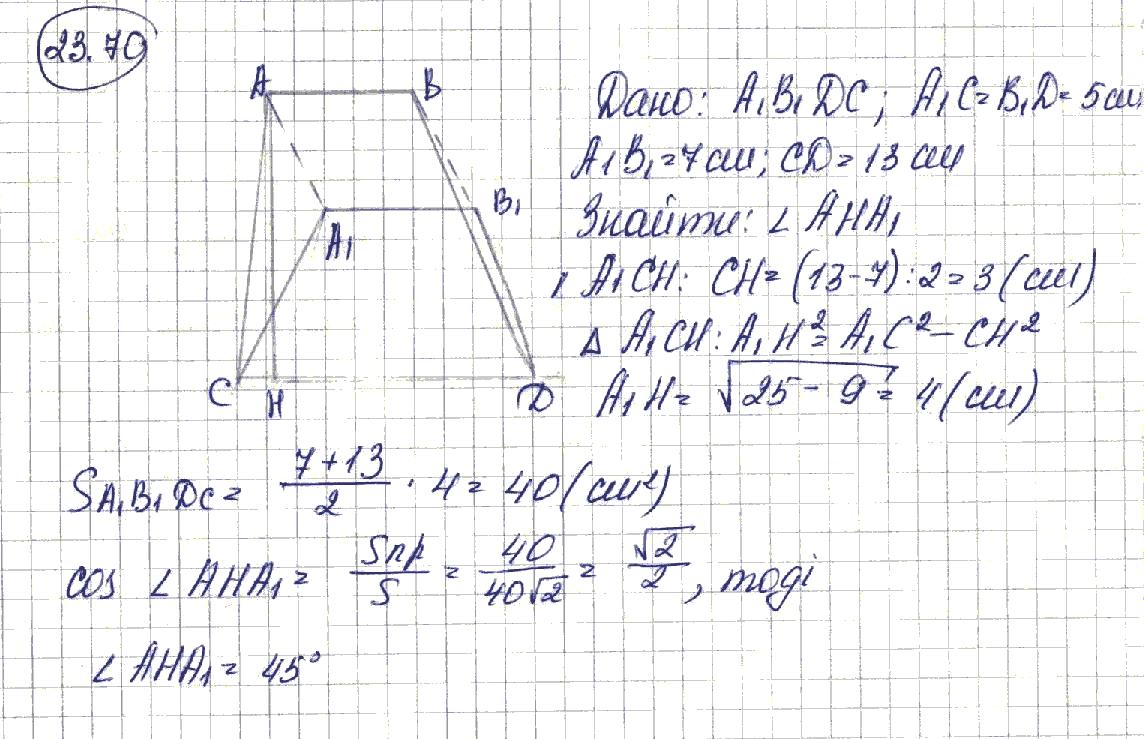 23.70
A B
B₁
A₁
C H D
Дано: A₁B₁DC; A₁C=B₁D=5см
A₁B₁=7см; CD=13 см
Знайти: ∠ AHA₁
A₁CH: CH=(13-7):2=3(см)
Δ A₁CH: A₁H²= A₁C²-CH²
A₁H= √25-9 = 4(см)
SA₁B₁DC= 7+13/2 · 4= 40(см²)
cos ∠ AHA₁= Sпр/S = 40/40√2 = √2/2, тоді
∠ AHA₁= 45°